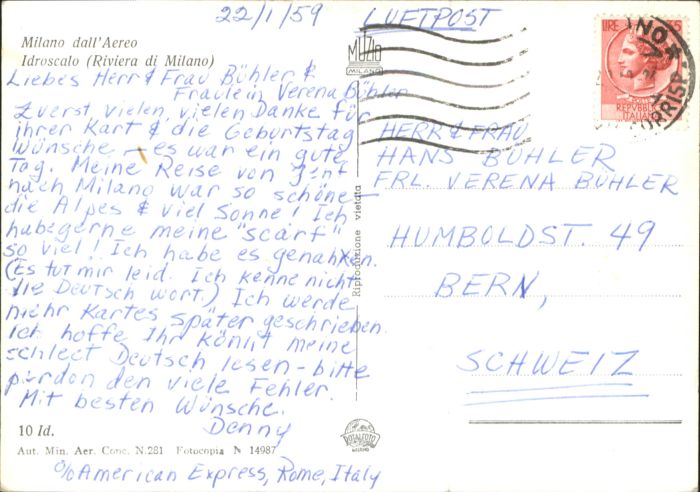 22/1/59
LUFTPOST
Milano dall'Aereo
Idroscalo (Riviera di Milano)
Liebes Herr & Frau Bühler &
Fraulein Verena Bühler
Zuerst vielen, vielen Danke für
ihrer Kart & die Geburtstag
Wünsche — es war ein gute
Tag. Meine Reise von Genf
nach Milano war so schöne—
die Alpes & viel Sonne! Ich
habe gerne meine "scarf"
so viel! Ich habe es genahken.
(Es tut mir leid. Ich kenne nicht
die Deutsch wort.) Ich werde
mehr Kartes später geschrieben.
Ich hoffe Ihr könnt meine
schlect Deutsch lesen - bitte
pardon den viele Fehler.
Mit besten Wünsche.
Denny
10 Id.
Aut. Min. Aer. Conc. N.281 Fotocopia N 14987
c/o American Express, Rome, Italy
MUZIO
MILANO
Riproduzione vietata
ROTALFOTO
MILANO
LIRE
REPVBBLICA
ITALIANA
HERR & FRAU
HANS BÜHLER
FRL. VERENA BÜHLER
HUMBOLDST. 49
BERN,
SCHWEIZ